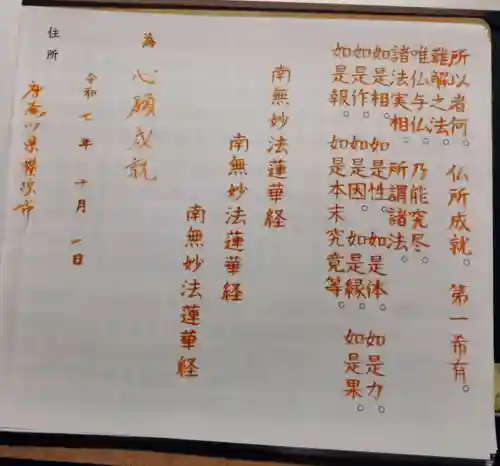 所以者何。 仏所成就。 第一希有。
難解之法。
唯仏与仏。 乃能究尽。
諸法実相。 所謂諸法。
如是相。 如是性。 如是体。 如是力。
如是作。 如是因。 如是縁。 如是果。
如是報。 如是本末究竟等。
南無妙法蓮華経
南無妙法蓮華経
南無妙法蓮華経
為 心願成就
令和七年十月一日
住所 神奈川県横浜市